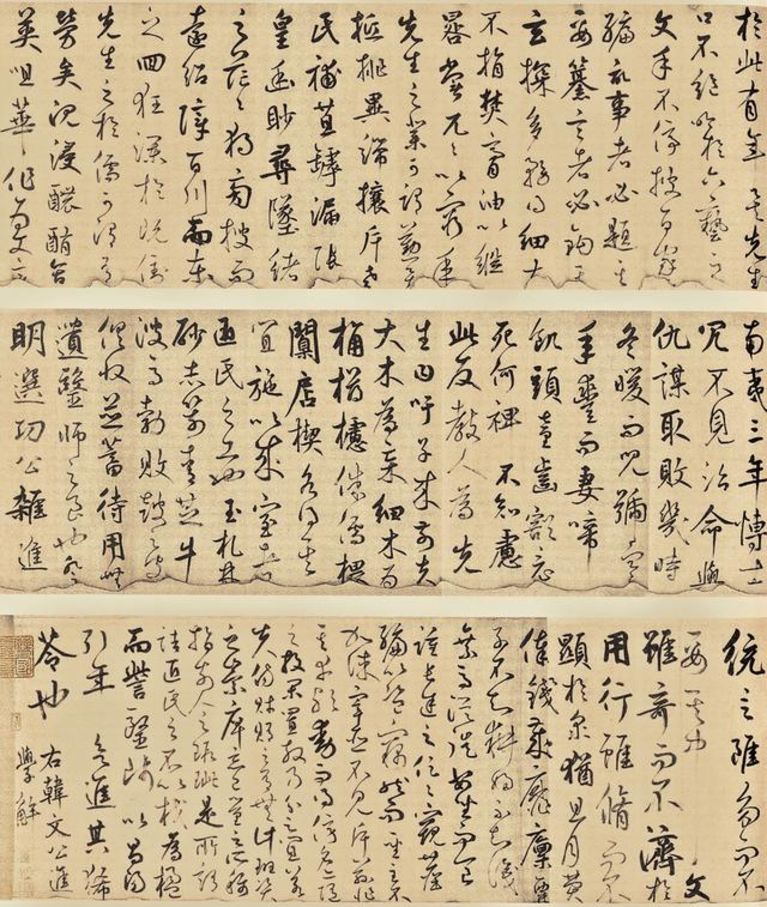 於此有年矣先生
口不絕吟於六藝之
文手不停披百家
編記事者必題其
要纂言者必鉤其
玄探多務得細大
不捐焚膏油以繼
晷常兀兀以窮年
先生之業可謂勤矣
觝排異端攘斥老
氏補苴罅漏張
皇幽眇尋墜緒
之茫茫獨旁搜而
遠紹障百川而東
之回狂瀾於既倒
先生之於儒可謂有
勞矣沉浸醲郁含
英咀華作為文章
南夷三年博士
冗不見治命與
仇謀取敗幾時
冬暖而兒號寒
年豐而妻啼
飢頭童齒豁竟
死何裨不知慮
此反教人為先
生曰吁子來前夫
大木為杗細木為
桷欂櫨侏儒椳
闑扂楔各得其
宜施以成室者
匠氏之工也玉札丹
砂赤箭青芝牛
溲馬勃敗鼓之皮
俱收並蓄待用無
遺醫師之良也登
明選功公雜進
統言雖多而不
要其中文
雖奇而不濟於
用行雖脩而不
顯於眾猶且月費
俸錢歲靡廩粟
子不知耕婦不知織
乘馬從徒安坐而食
踵常途之役役窺陳
編以盜竊然而聖主不
加誅宰臣不見斥茲非
其幸歟動而得謗名亦隨
之投閑置散乃分之宜若
夫商財賄之有無計班資
之崇庳忘量己之所稱
指前人之瑕疵是所謂
詰匠氏之不以杙為楹
而訾醫師以昌陽
引年欲進其豨
苓也 右韓文公進
學解